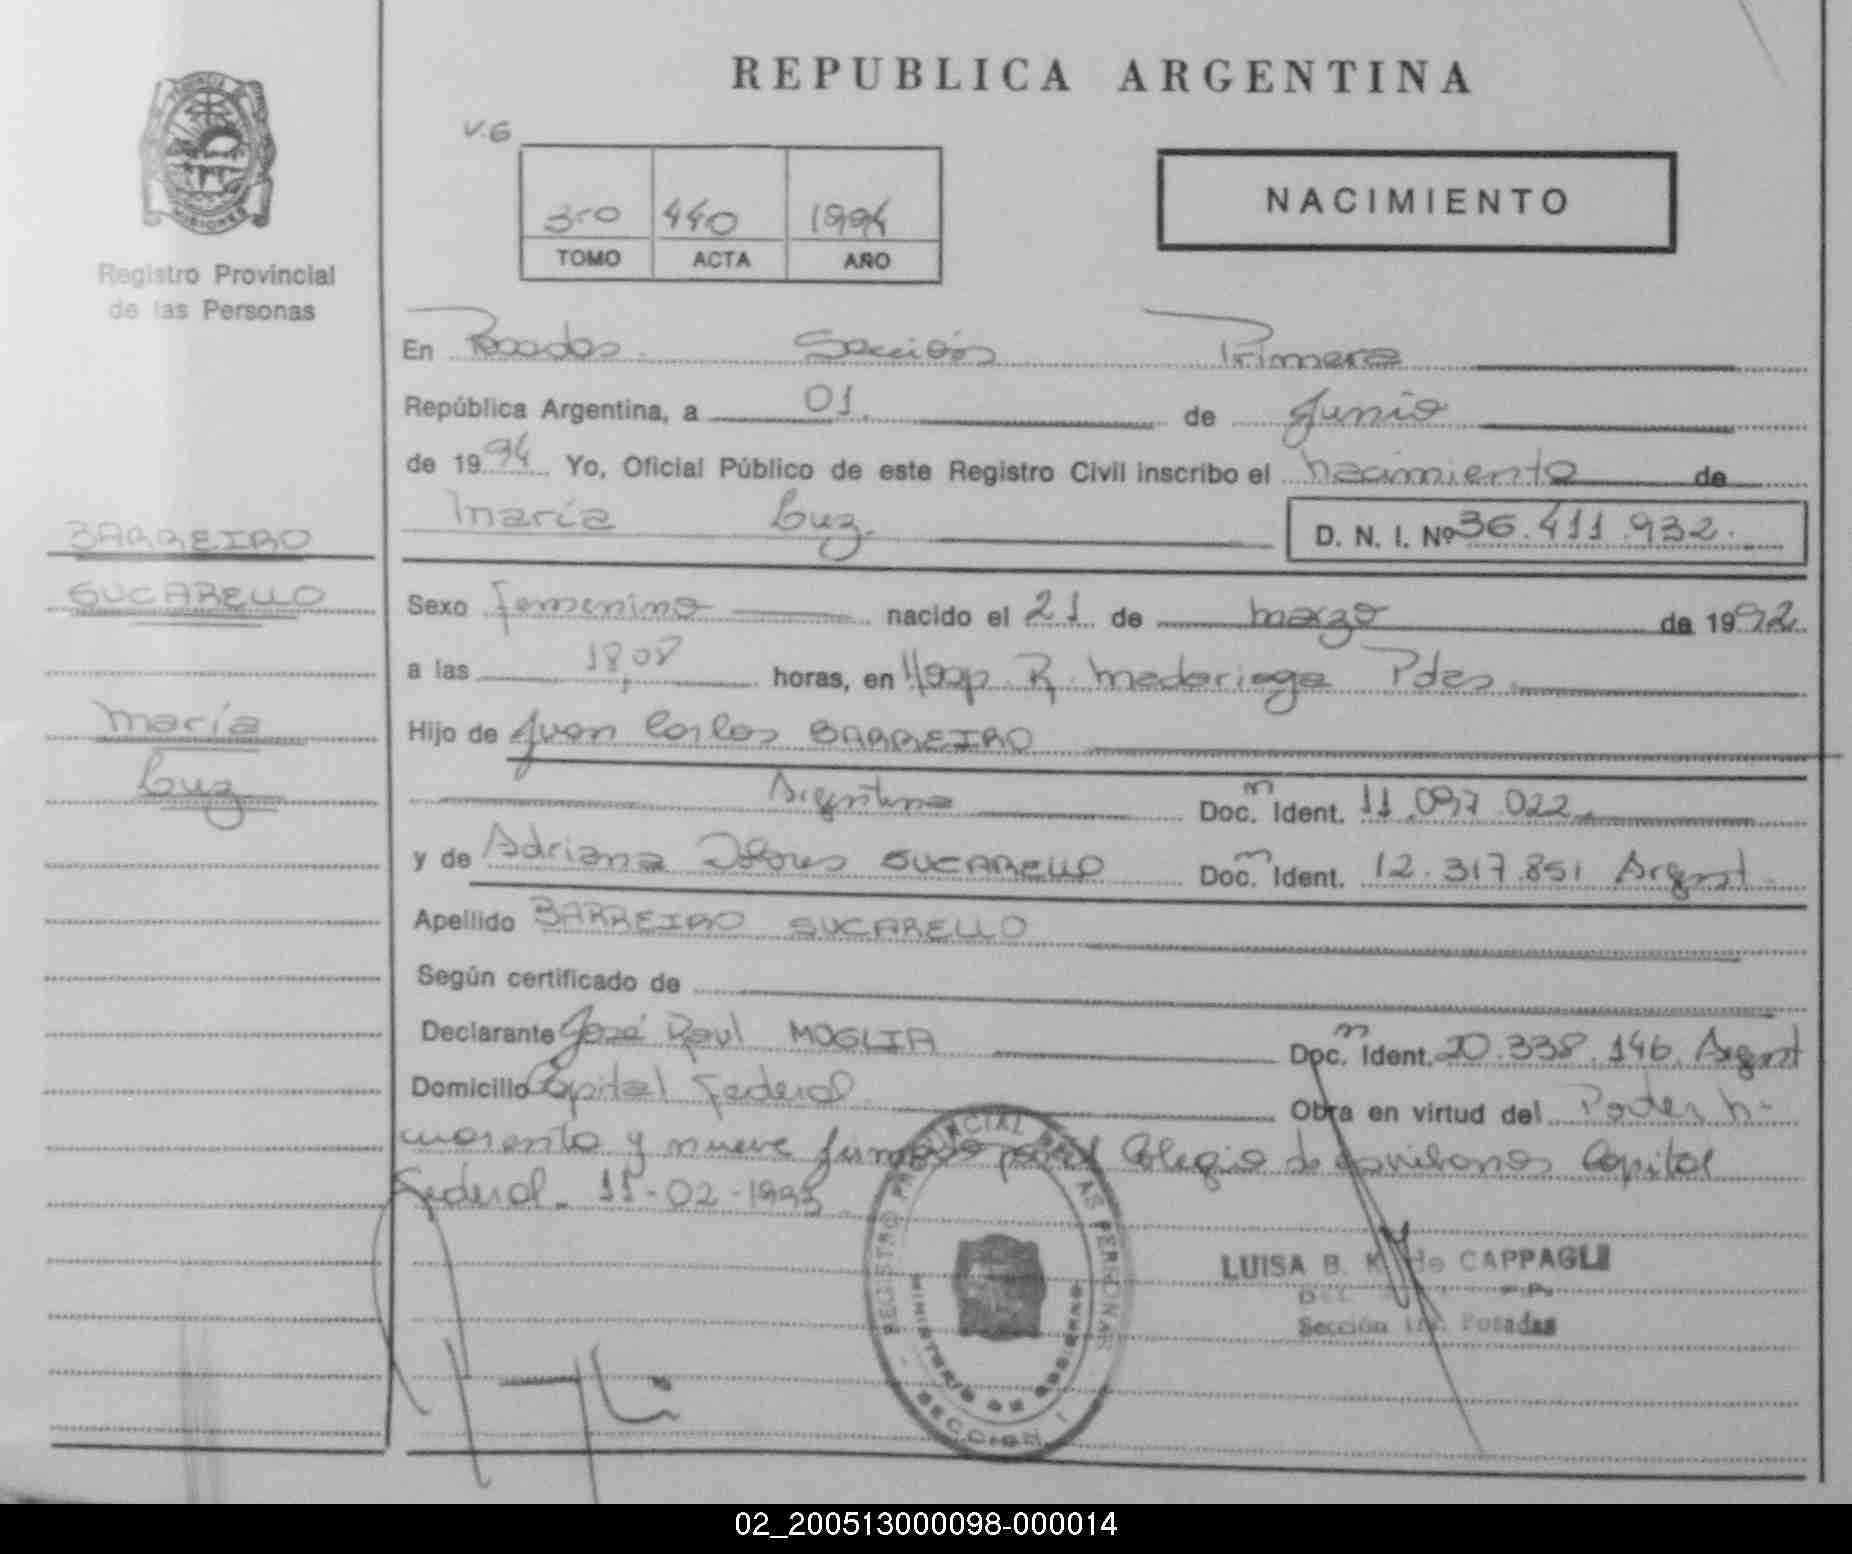 REPUBLICA ARGENTINA
V.6
3ro 440 1994
TOMO ACTA AÑO
NACIMIENTO
MISIONES
Registro Provincial
de las Personas
BARREIRO
SUCARELLO
María
Luz
En Posadas Sección Primera
República Argentina, a 01. de Junio
de 1994 Yo, Oficial Público de este Registro Civil inscribo el nacimiento de
María Luz. D. N. I. Nº 36.411.932.
Sexo Femenino nacido el 21 de marzo de 1992.
a las 18,08 horas, en Hosp. R. Madariaga Pdas.
Hijo de Juan Carlos BARREIRO
Argentina Doc. m Ident. 11.097.022.
y de Adriana Dolores SUCARELLO Doc. m Ident. 12.317.851 Argent.
Apellido BARREIRO SUCARELLO
Según certificado de
Declarante José Raul MOGLIA Doc. m Ident. 20.338.146. Argent
Domicilio Capital Federal Obra en virtud del Poder n-
cuarenta y nueve firmado por el Colegio de escribanos Capital
Federal. 11-02-1993
REGISTRO PROVINCIAL DE LAS PERSONAS
MINISTERIO DE GOBIERNO
SECCION 1
LUISA B. K. de CAPPAGLI
Sección 1ra. Posadas
02_200513000098-000014